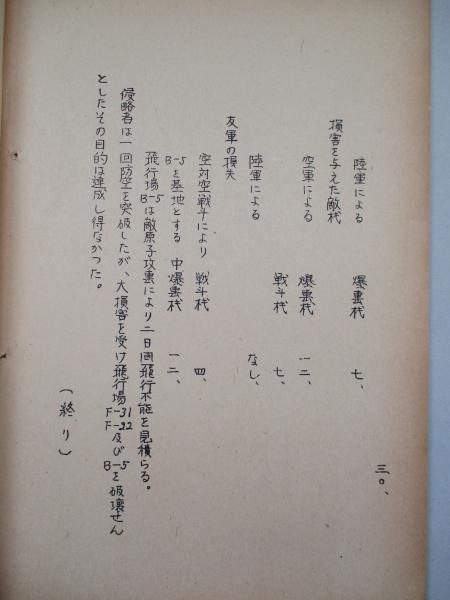 三〇、
陸軍による 爆撃機 七、
損害を与えた敵機
空軍による 爆撃機 一二、
戦斗機 七、
陸軍による なし、
友軍の損失
空対空戦斗により 戦斗機 四、
B-5を基地とする 中爆撃機 一二、
飛行場B-5は敵原子攻撃により二日間飛行不能を見積らる。
侵略者は一回防空を突破したが、大損害を受け飛行場F-31 F-22及びB-5を破壊せん
としたその目的は達成し得なかつた。
(終り)